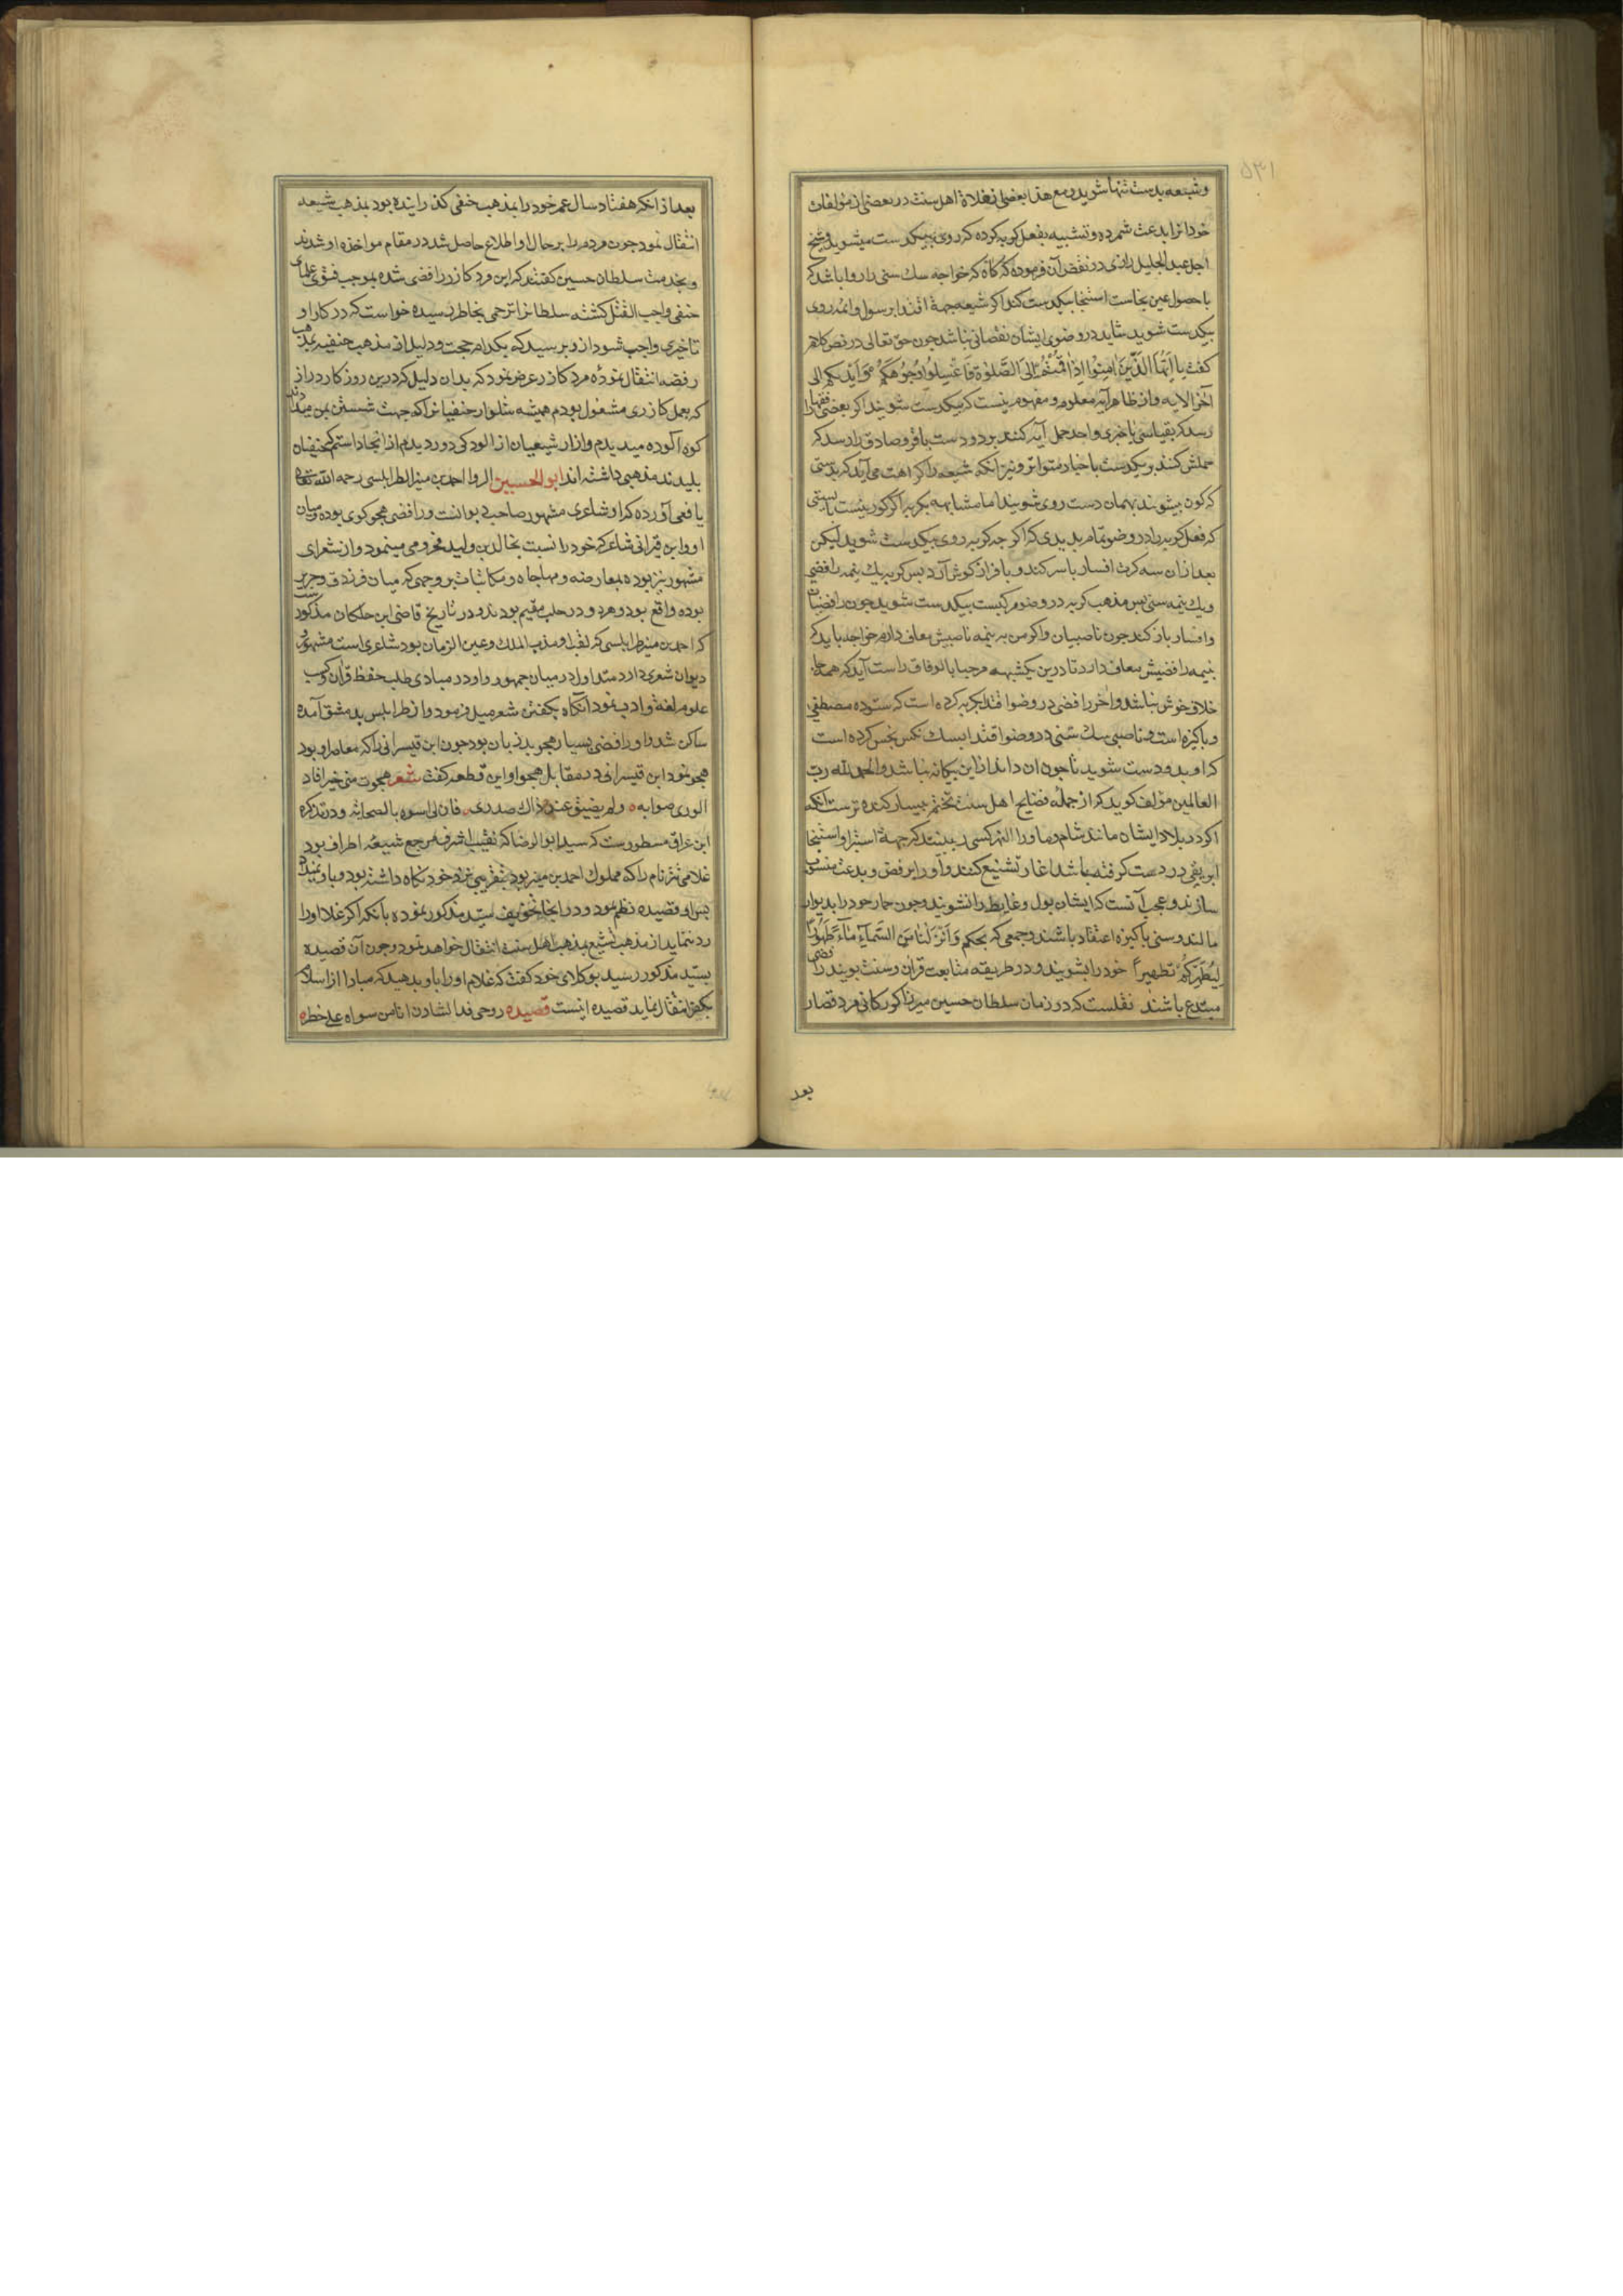 ۵۳۱
وشیعه بدست تنها شویند و مع هذا بعضی از غلاة اهل سنت در بعضی از مؤلفات
خود انرا بدعت شمرده و تشبیه بفعل کربه کرده که روی بیکدست میشوید و شیخ
اجل عبد الجلیل رازی در نقض آن فرموده که که خواجه سک سنی را روا باشد که
با حصول عین نجاست استنجا بیکدست کند اکر شیعه جهة اقتدا برسول و ائمه روی
بیکدست شوید شاید در وضوی ایشان نقصانی نباشد جون حق تعالی در نص کلام
کفت یا اَیُّهَا الَّذینَ اٰمَنُوا اِذٰا قُمْتُمْ اِلیَ الصَّلوٰةِ فَاغْسِلُوا وُجُوهَکُمْ وَاَیْدیَکُم الی
آخر الایه و از ظاهر آیه معلوم و مفهوم نیست که بیکدست شویند اکر بعضی فقها را
رسد که بقیاسی یا خبری واحد حمل آیه کنند بر دو دست باقر و صادق را رسد که
حملش کنند بر یکدست باخبار متواتر و نیز انکه شیعه را کراهت می آید که بدستی
که کون بشویند بهمان دست روی شویند اما مشابهه بکربه اکر کور نیست بایستی
که فعل کربه را در وضو تمام بدیدی که اکر جه کربه روی بیکدست شوید لیکن
بعد ازان سه کرت افسار با سر کند و با فراز کوش آرد پس کربه یک نیمه رافضی
ویک نیمه سنی پس مذهب کربه در وضو مرکبست بیکدست شوید جون رافضیان
وافسار باز کند جون ناصبیان واکر من به نیمه ناصبیش معاف دارم خواجه باید که
بنیمه رافضیش معاف دارد تا درین یکشبهه مرحبا بالوفاق راست آید که همه جا
خلاف خوش نباشد و آخر رافضی در وضو اقتدا بکربه کرده است که ستوده مصطفی
و پاکیزه است و ناصبی سک سنی در وضو اقتدا بسک نکس نجس کرده است
که او بدو دست شوید تا جون ان داند ازاین بیکانه نباشد والحمد لله رب
العالمین مؤلف کوید که از جمله فضایح اهل سنت تختم بیسار کننده ترست انکه
اکر در بلاد ایشان مانند شام و ما ورا النهر کسی را بینند که جهة استبرا و استنجا
ابریقی در دست کرفته باشد اغاز تشنیع کنند و او را برفض و بدعت منسوب
سازند و عجب آنست که ایشان بول و غایط را نشویند و جون حمار خود را بدیوار
مالند و سنی پاکیزه اعتقاد باشند و جمعی که بحکم وَاَنْزَلْنٰا مِنَ السَّمٰآءِ مٰآءً طَهُورًا
لِیُطَهِّرَکُمْ تطهیراً خود را بشویند و در طریقه متابعت قران و سنت پویند رافضی
مبتدع باشند نقلست که در زمان سلطان حسین میرزا کورکانی مرد قصار
بعد
بعد از انکه هفتاد سال عمر خود را بمذهب حنفی کذرانیده بود بمذهب شیعه
انتقال نمود جون مردم را بر حال او اطلاع حاصل شد در مقام مواخذه او شدند
و بخدمت سلطان حسین کفتند که این مرد کازر رافضی شده بموجب فتوی علمای
حنفی واجب القتل کشته سلطانرا ترحمی بخاطر رسیده خواست که در کار او
تاخیری واجب شود ازو پرسید که بکدام حجت و دلیل از مذهب حنفیه بمذهب
رفضه انتقال نموده مرد کازر عرض نمود که بدان دلیل که درین روزکار دراز
که بعمل کازری مشغول بودم همیشه شلوار حنفیانرا که جهت شستن بمن میدادند
کوه آلوده میدیدم و ازار شیعیان از الودکی دور دیدم از انجا دانستم که حنفیان
پلیدند مذهبی داشته اند ابو الحسین الروا احمد بن منیر الطرابلسی رحمه الله تعالی
یافعی آورده که او شاعری مشهور صاحب دیوانت و رافضی هجوکوی بوده و میان
او و ابن قیرانی شاعر که خود را نسبت بخالد بن ولید مخزومی مینمود و از شعرای
مشهور نیز بوده بمعارضه و مهاجاه و مکاتبات بر وجهی که میان فرزدق و جریر
بوده واقع بود و هر دو در حلب مقیم بودند و در تاریخ قاضی ابن خلکان مذکور
که احمد بن منیر طرابلسی که لقب او مهذب الملک و عین الزمان بود شاعری است مشهور
دیوان شعری دارد متداول در میان جمهور و او در مبادی طلب حفظ قرآن و کسب
علوم لغة و ادب نمود انکاه بکفتن شعر میل فرمود و از طرابلس بدمشق آمده
ساکن شد و او رافضی بسیار هجو بد زبان بود جون ابن قیسرانی را که معاصر او بود
هجو نمود ابن قیسرانی در مقابل هجو او این قطعه کفت شعر هجوت منی خیرا فاد
الوری صوابه ولم یضیق عنه ذاک صدری فان لی اسوه بالصحابه و در تذکره
ابن عراق مسطورست که سید ابو الرضا که نقیب اشرف و مرجع شیعه اطراف بود
غلامی تتر نام را که مملوک احمد بن منیر بود بتقریبی نزد خود نکاه داشته بود و باو نمیداد
پس او قصیده نظم نمود و در انجا تخویف سید مذکور نموده بانکه اکر غلام او را
رد ننماید از مذهب تشیع بمذهب اهل سنت انتقال خواهد نمود و جون آن قصیده
بسید مذکور رسید بوکلای خود کفت که غلام او را باو بدهید که مبادا از اسلام
بکفر انتقال نماید قصیده اینست قصیده روحی فدا لشادن انا من سواه علی خطره